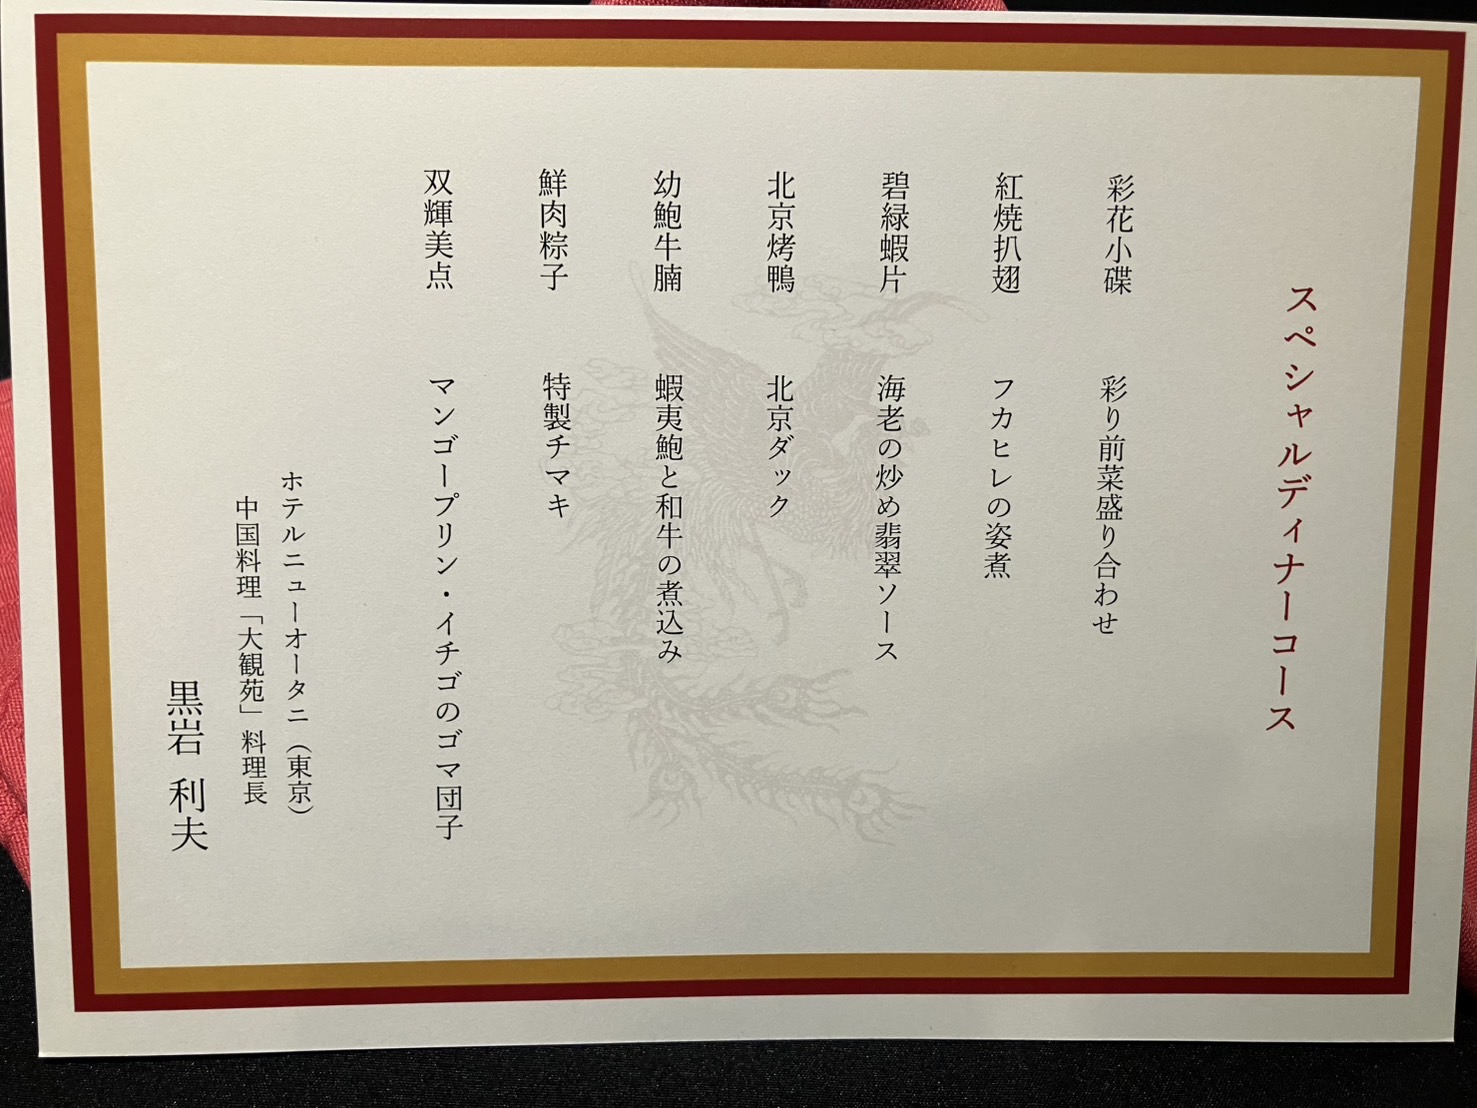 スペシャルディナーコース
彩花小碟　彩り前菜盛り合わせ
紅焼扒翅　フカヒレの姿煮
碧緑蝦片　海老の炒め翡翠ソース
北京烤鴨　北京ダック
幼鮑牛腩　蝦夷鮑と和牛の煮込み
鮮肉粽子　特製チマキ
双輝美点　マンゴープリン・イチゴのゴマ団子
ホテルニューオータニ（東京）
中国料理「大観苑」料理長
黒岩 利夫